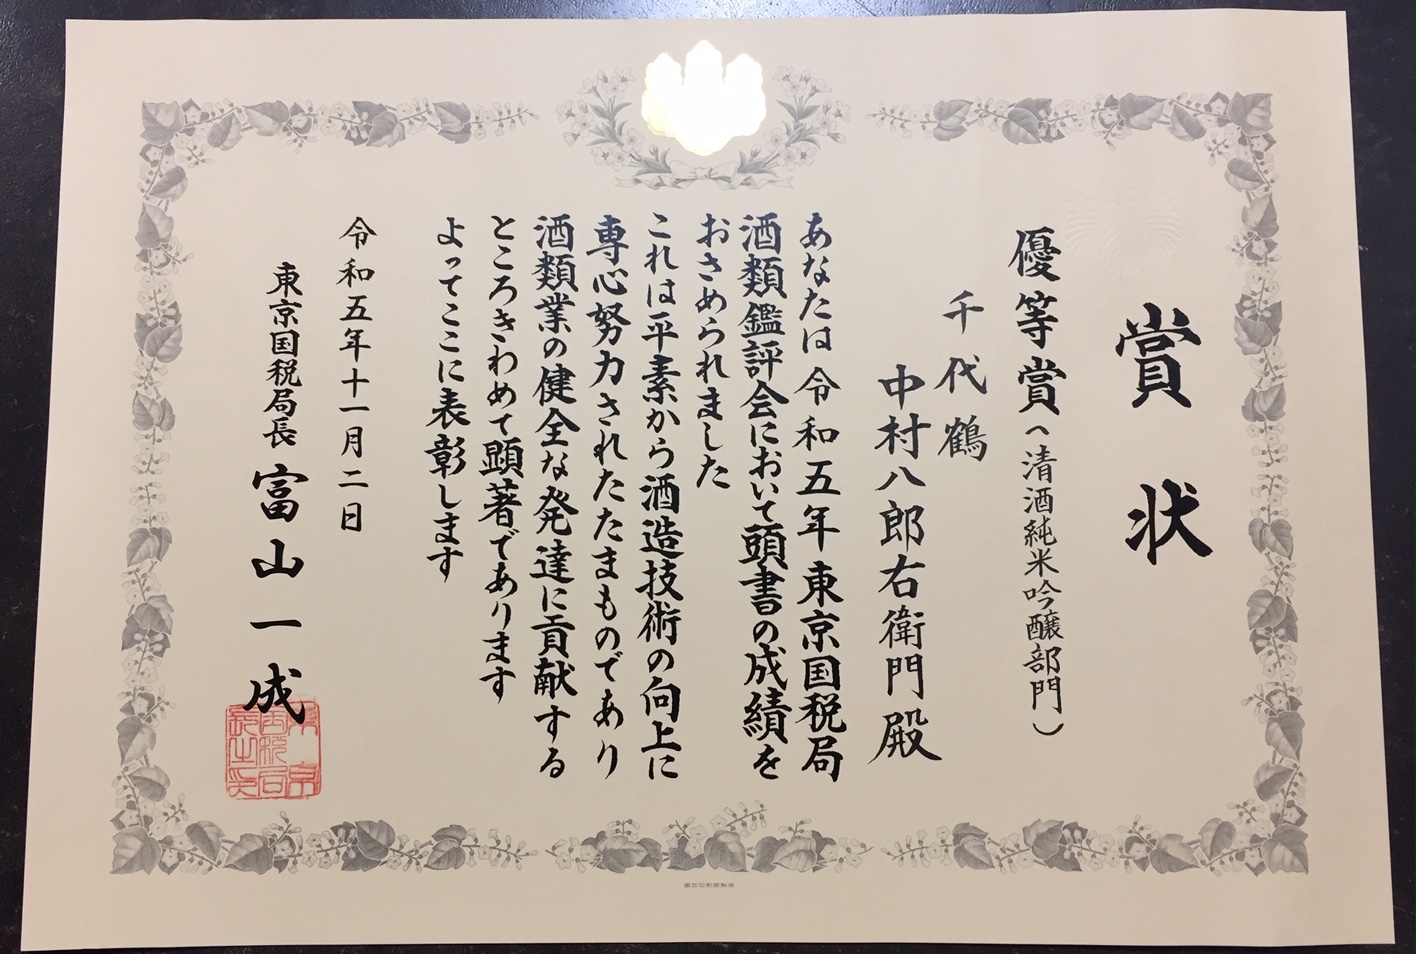 賞状
優等賞(清酒純米吟醸部門)
千代鶴
中村八郎右衛門殿
あなたは令和五年東京国税局
酒類鑑評会において頭書の成績を
おさめられました
これは平素から酒造技術の向上に
専心努力されたたまものであり
酒類業の健全な発達に貢献する
ところきわめて顕著であります
よってここに表彰します
令和五年十一月二日
東京国税局長 富山一成